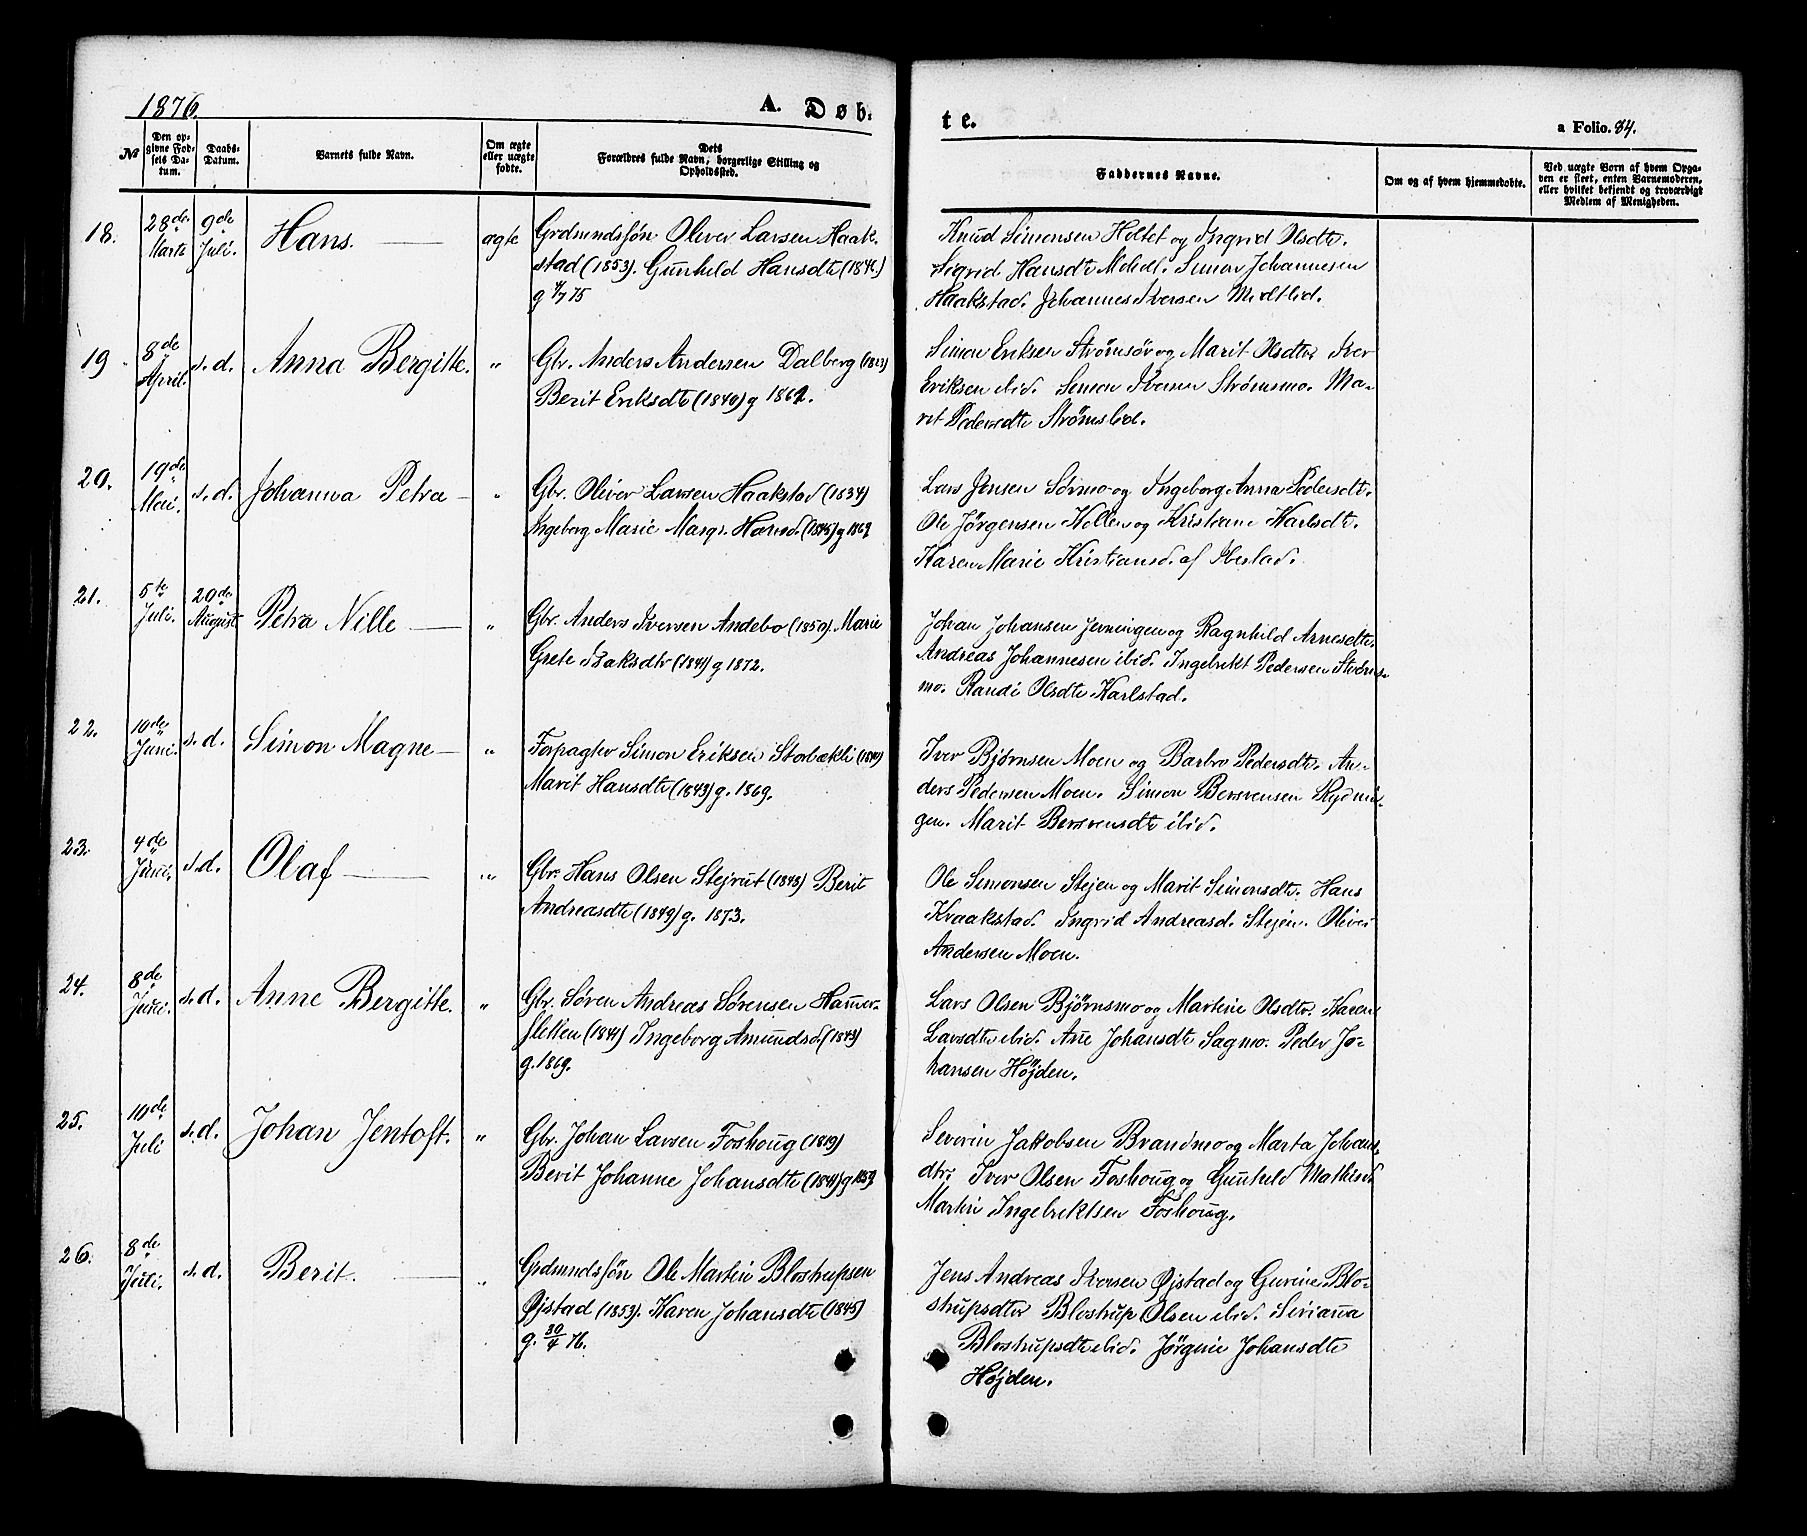 1876.
A. Døb-
te.
a Folio. 84.
№
Den op-
givne Fød-
sels Da-
tum.
Daabs-
Datum.
Barnets fulde Navn.
Om ægte
eller uægte
fødte.
Dets
Forældres fulde Navn, borgerlige Stilling og
Opholdssted.
Faddernes Navne.
Om og af hvem hjemmedøbte.
Ved uægte Børn af hvem Opga-
ven er skeet, enten Barnemoderen,
eller hvilket bekjendt og troværdigt
Medlem af Menigheden.
18. 28de Marts 9de Juli. Hans. ægte
Grdmndssøn Oliver Larsen Haak-
stad (1853). Gunhild Hansdtr
g 4/7 75
Knud Simonsen Holtet og Ingrid Olsdtr.
Sigrid Hansdtr Melidl. Simon Johannesen
Haakstad. Johannes Iversen Midtlid.
19. 8de April. s.d. Anna Bergitte. "
Gbr. Anders Andersen Dalberg
Berit Eriksdtr (1840) g 1862.
Simon Eriksen Strømsør og Marit Olsdtr Iver
Eriksen ibid. Simon Iversen Strømsmo. Ma-
rit Pedersdtr Strømslid.
20. 19de Mai. s.d. Johanna Petra "
Gbr. Oliver Larsen Haakstad (1834)
Ingeborg Marie Margr. Hansd. (1845) g 1869
Lars Jensen Sørmo og Ingeborg Anna Pedersdtr.
Ole Jørgensen Kollen og Kristiane Karlsdtr.
Karen Marie Kristiansd. af Ibestad.
21. 5te Juli. 20de August Petra Nille "
Gbr. Anders Iversen Andebo (1850). Marie
Grete Isaksdtr (1841) g 1872.
Johan Johansen Jevningen og Ragnhild Arnesdtr.
Andreas Johannesen ibid. Ingebrikt Pedersen Strøms-
mo. Randi Olsdtr Karlstad.
22. 10de Juni. s.d. Simon Magne "
Forpagter Simon Eriksen Storbækli (1840)
Marit Hansdtr (1843) g. 1869.
Iver Bjørnsen Moen og Barbro Pedersdtr. An-
ders Pedersen Moen. Simon Bersvensen Rydnin-
gen. Marit Bersvensdtr ibid.
23. 4de Juni. s.d. Olaf "
Gbr. Hans Olsen Stejrut (1848) Berit
Andreasdtr (1849) g. 1873.
Ole Simonsen Stejen og Marit Simonsdtr. Hans
Kraakstad. Ingrid Andreasd. Stejen. Oliver
Andersen Moen.
24. 8de Juni. s.d. Anne Bergitte. "
Gbr. Søren Andreas Sørensen Hamer-
sletten (1841) Ingeborg Amundsd. (1843)
g. 1869.
Lars Olsen Bjørnsmo og Martine Olsdtr. Karen
Larsdtr ibid. Ane Johansdtr Sagmo. Peder Jo-
hansen Højden.
25. 10de Juli s.d. Johan Jentoft. "
Gbr. Johan Larsen Foshoug (1819)
Berit Johanne Johansdtr (1841) g 1859
Severin Jakobsen Brandmo og Marta Johans-
dtr. Iver Olsen Foshoug og Gunhild Mathisd.
Martin Ingebriktsen Foshoug.
26. 8de Juli. s.d. Berit. "
Grdmndssøn Ole Martin Blostrupsen
Øjstad (1853). Karen Johansdtr (1845)
g. 30/4 76.
Jens Andreas Iversen Øjstad og Gurine Blo-
strupsdtr Blostrup Olsen ibid. Sirianna
Blostrupsdtr ibid. Jørgine Johansdtr
Højden.